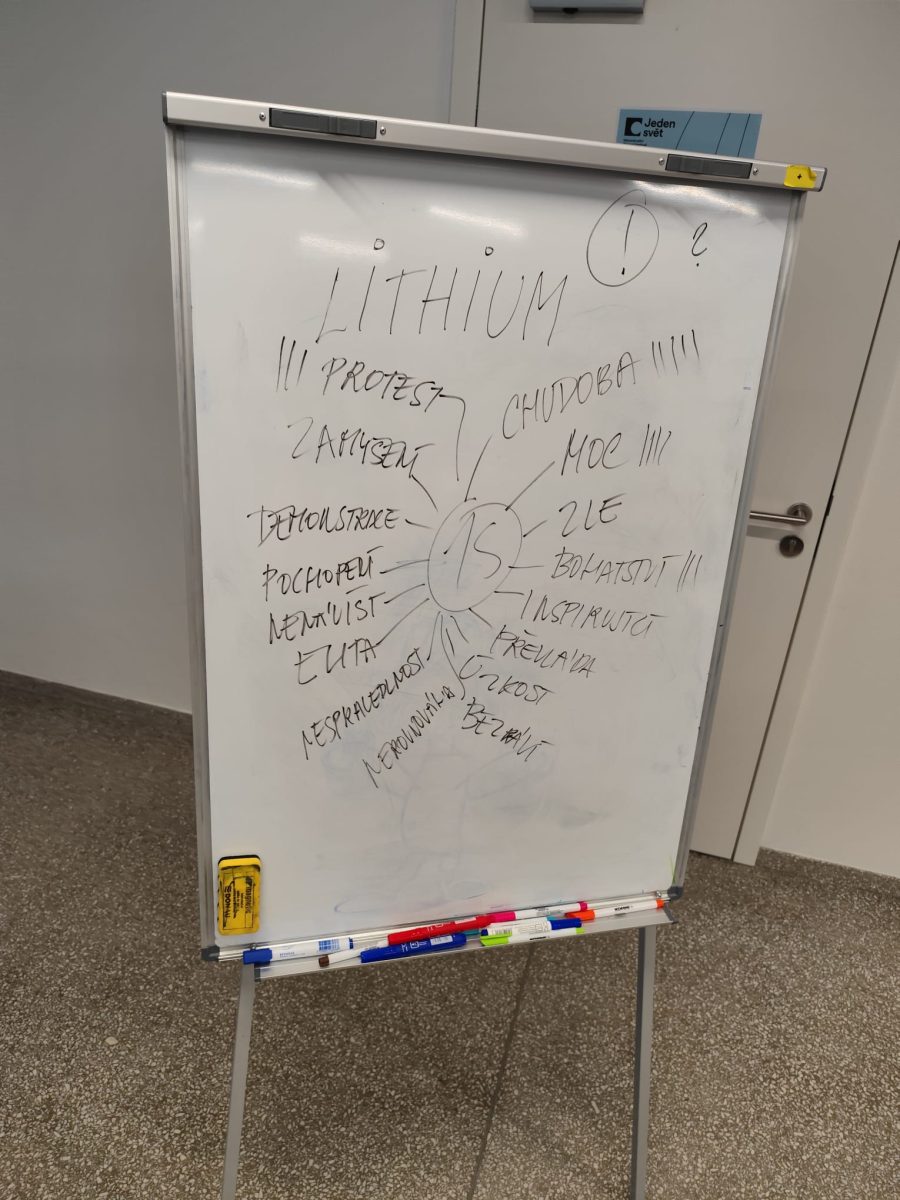 Jeden
svět
LITHIUM ! ?
||| PROTEST
CHUDOBA |||||
ZAMYŠENÍ
MOC ||||
DEMONSTRACE
ZLE
15
POCHOPENÍ
BOHATSTVÍ |||
NENÁVIST
INSPIRUJÍCÍ
ELITA
PŘEVLÁDA
NESPRAVEDLNOST
ÚZKOST
NEROVNOVÁHA
BEZPRÁVÍ